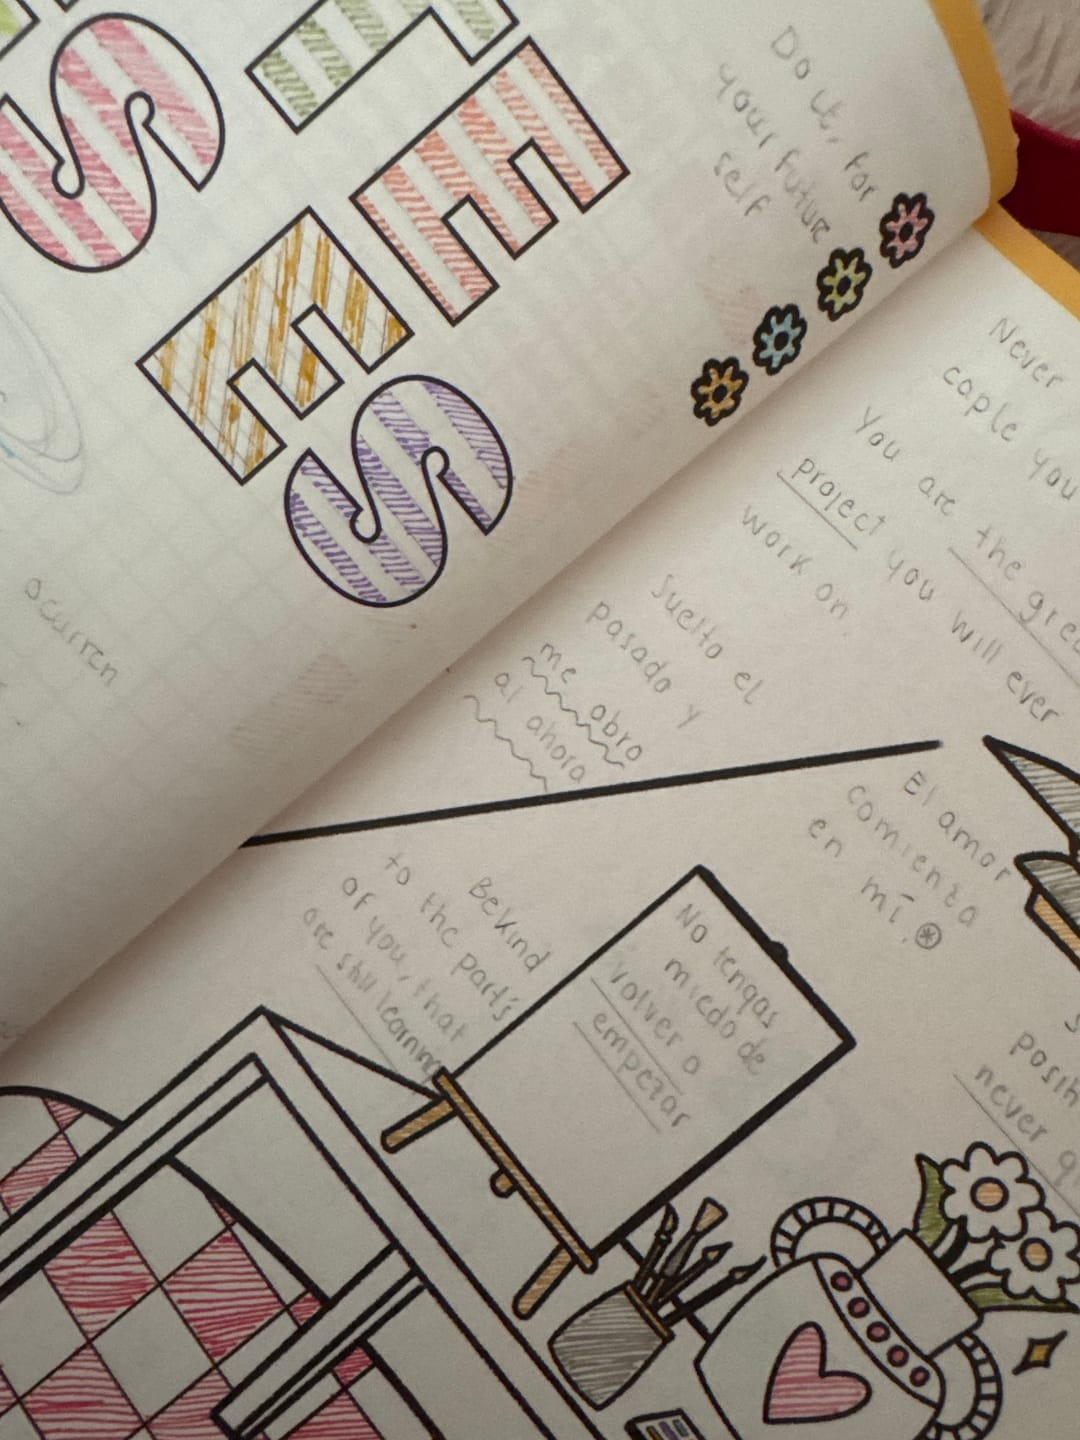 S
E
E
S
Do it, for
your future
self
ocurren
Never
caple you
You are the grea
project you will ever
work on.
Suelto el
pasado y
me abro
al ahora
El amor
comienza
en mí.
Be kind
to the parts
of you, that
are still learning
No tengas
miedo de
volver a
empezar
never